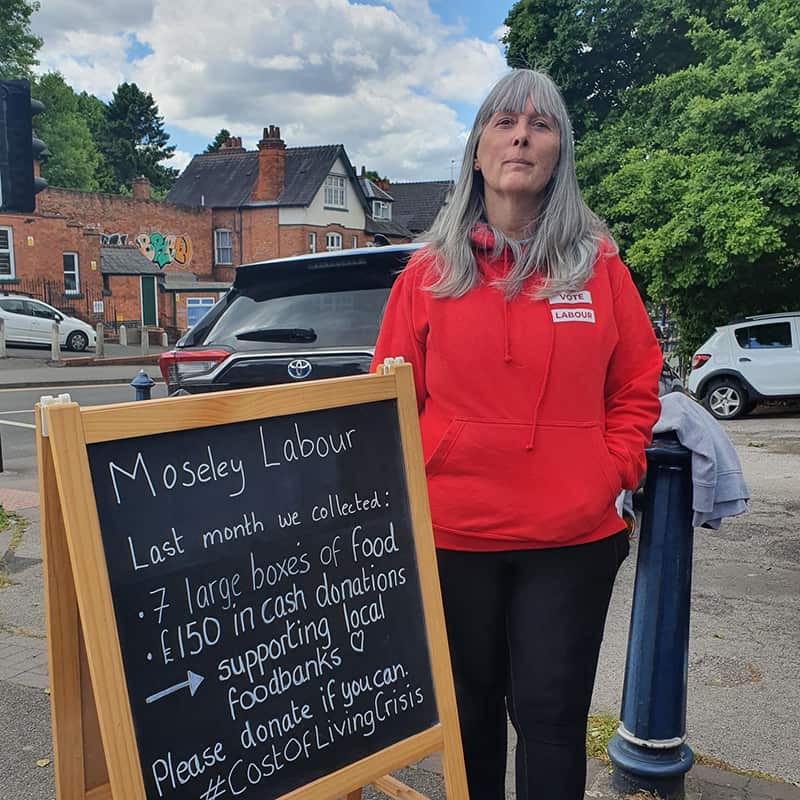 Moseley Labour
Last month we collected:
• 7 large boxes of food
• £150 in cash donations
→ supporting local
foodbanks ♡
Please donate if you can.
#CostOfLivingCrisis
VOTE
LABOUR